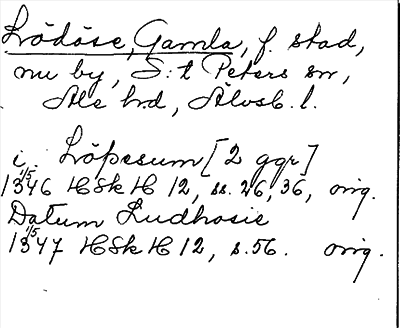 Lödöse, Gamla, f. stad,
nu by, S:t Peters sn,
Ale hd, Älvsb. l.
i Löþesum [2 ggr]
1/5
1346 HSkH 12, ss. 26, 36, orig.
Datum Ludhosie
1/5
1347 HSkH 12, s. 56. orig.